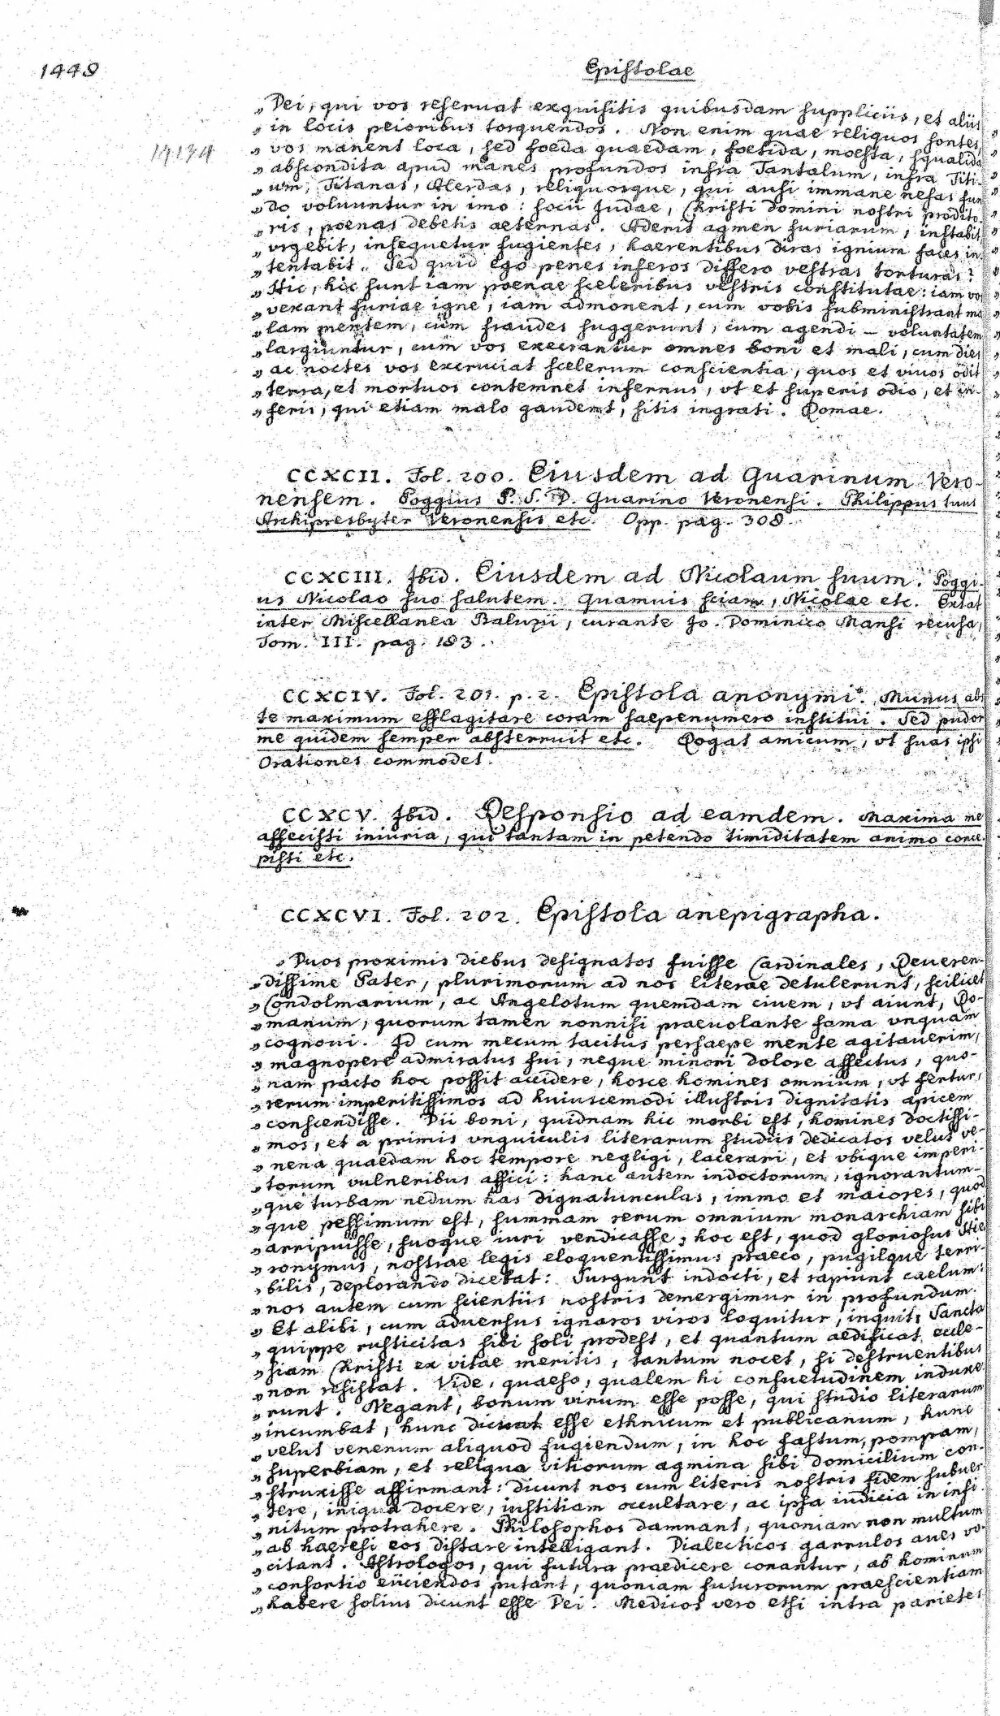 1448
Epistolae
14134
„ Dei, qui vos reseruat exquisitis quibusdam suppliciis, et aliis
„ in locis peioribus torquendos. Non enim quae reliquos sontes
„ vos manent loca, sed foeda quaedam, foetida, moesta, squalida
„ abscondita apud manes profundos infra Tantalum, infra Titi-
„ um, Titanas, reliquosque, qui ausi immane nefas fun
„ do voluuntur in imo: socii Judae, Christi domini nostri prodito
„ ris, poenas debetis aeternas. Aderit agmen furiarum, instabit
„ vrgebit, insequetur fugientes, haerentibus diras ignium faces in
„ tentabit. Sed quid ego penes inferos differo vestras torturas?
„ Hic, hic sunt iam poenae sceleribus vestris constitutae: iam vos
„ vexant furiae igne, iam admonent, cum vobis subministrant ma
„ lam mentem, cum fraudes suggerunt, cum agendi – voluntatem
„ largiuntur, cum vos execrantur omnes boni et mali, cum dies
„ ac noctes vos excruciat scelerum conscientia, quos et viuos odit
„ terra, et mortuos contemnet infernus, vt et superis odio, et in-
„ feris, qui etiam malo gaudent, sitis ingrati. Romae.
CCXCII. Fol. 200. Eiusdem ad Guarinum Vero-
nensem. Poggius P. S. D. Guarino Veronensi. Philippus tuus
Archipresbyter Veronensis etc. Opp. pag. 308.
CCXCIII. Ibid. Eiusdem ad Nicolaum suum. Poggi-
us Nicolao suo salutem. Quamuis sciam, Nicolae etc. Extat
inter Miscellanea Baluzii, curante Jo. Dominico Mansi recusa,
Tom. III. pag. 183.
CCXCIV. Fol. 201. p. 2. Epistola anonymi. Munus abs
te maximum efflagitare coram saepenumero institui. Sed pudor
me quidem semper absterruit etc. Rogat amicum, vt suas ipsi
Orationes commodet.
CCXCV. Ibid. Responsio ad eamdem. Maxima me
affecisti iniuria, qui tantam in petendo timiditatem animo conce-
pisti etc.
CCXCVI. Fol. 202. Epistola anepigrapha.
„ Duos proximis diebus designatos fuisse Cardinales, Reueren-
„ dissime Pater, plurimorum ad nos literae detulerunt, scilicet
„ Condolmarium, ac Angelotum quemdam ciuem, vt aiunt, Ro-
„ manum, quorum tamen nonnisi praeuolante fama vnquam
„ cognoui. Id cum mecum tacitus persaepe mente agitauerim,
„ magnopere admiratus fui, neque minori dolore affectus, quo-
„ nam pacto hoc possit accidere, hosce homines omnium, vt fertur,
„ rerum imperitissimos ad huiuscemodi illustris dignitatis apicem
„ conscendisse. Dii boni, quidnam hic morbi est, homines doctissi-
„ mos, et a primis vnguiculis literarum studiis dedicatos velut ve-
„ nena quaedam hoc tempore negligi, lacerari, et vbique imperi-
„ torum vulneribus affici: hanc autem indoctorum, ignorantum-
„ que turbam nedum has dignatunculas, immo et maiores, quod
„ que pessimum est, summam rerum omnium monarchiam sibi
„ arripuisse, suoque iuri vendicasse; hoc est, quod gloriosus Hie
„ ronymus, nostrae legis eloquentissimus praeco, pugilque terri-
„ bilis, deplorando dicebat: Surgunt indocti, et rapiunt caelum:
„ nos autem cum scientiis nostris demergimur in profundum.
„ Et alibi, cum aduersus ignaros viros loquitur, inquit: Sancta
„ quippe rusticitas sibi soli prodest, et quantum aedificat eccle-
„ siam Christi ex vitae meritis, tantum nocet, si destruentibus
„ non resistat. Vide, quaeso, qualem hi consuetudinem induxe
„ runt. Negant, bonum virum esse posse, qui studio literarum
„ incumbat, hunc dicunt esse ethnicum et publicanum, hunc
„ velut venenum aliquod fugiendum, in hoc fastum, pompam,
„ superbiam, et reliqua vitiorum agmina sibi domicilium con-
„ struxisse affirmant: dicunt nos cum literis nostris fidem subuer
„ tere, iniqua docere, iustitiam occultare, ac ipsa iudicia in infi-
„ nitum protrahere. Philosophos damnant, quoniam non multum
„ ab haeresi eos distare intelligant. Dialecticos garrulos aues vo-
„ citant. Astrologos, qui futura praedicere conantur, ab hominum
„ consortio eiiciendos putant, quoniam futurorum praescientiam
„ habere solius dicunt esse Dei. Medicos vero etsi intra parietes